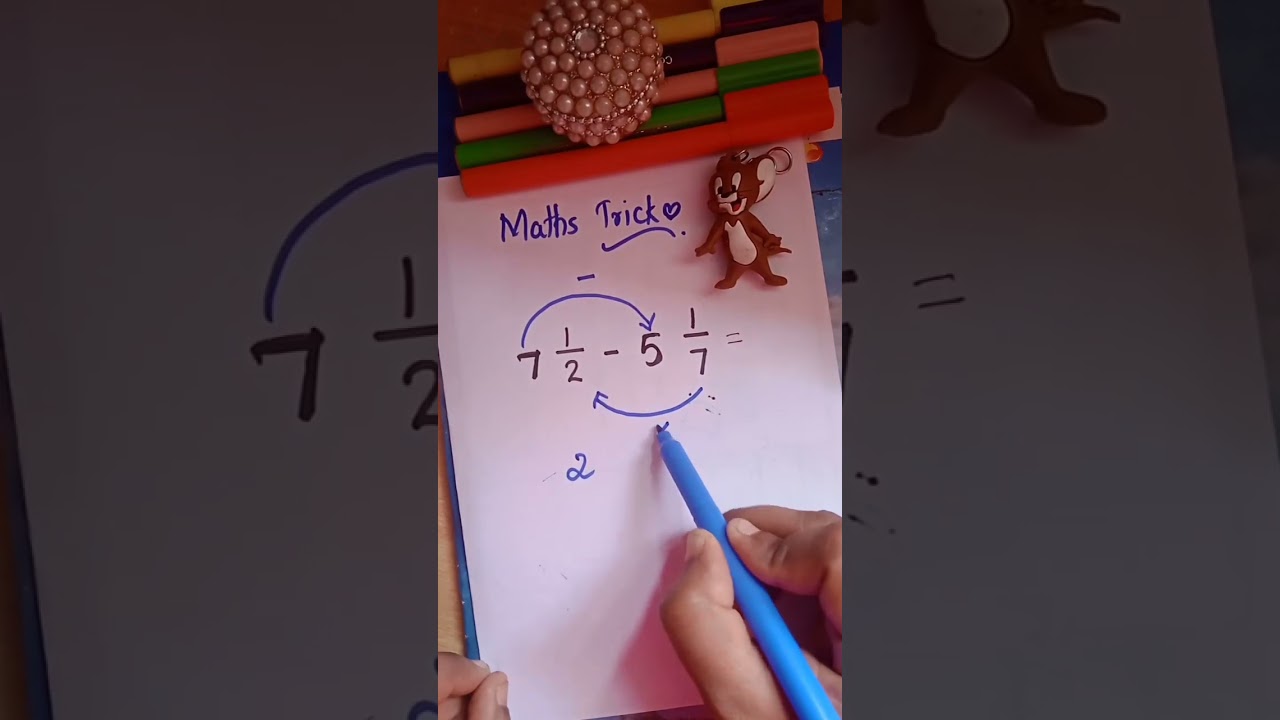 Maths Trick ♡
-
7 1/2 - 5 1/7 =
2